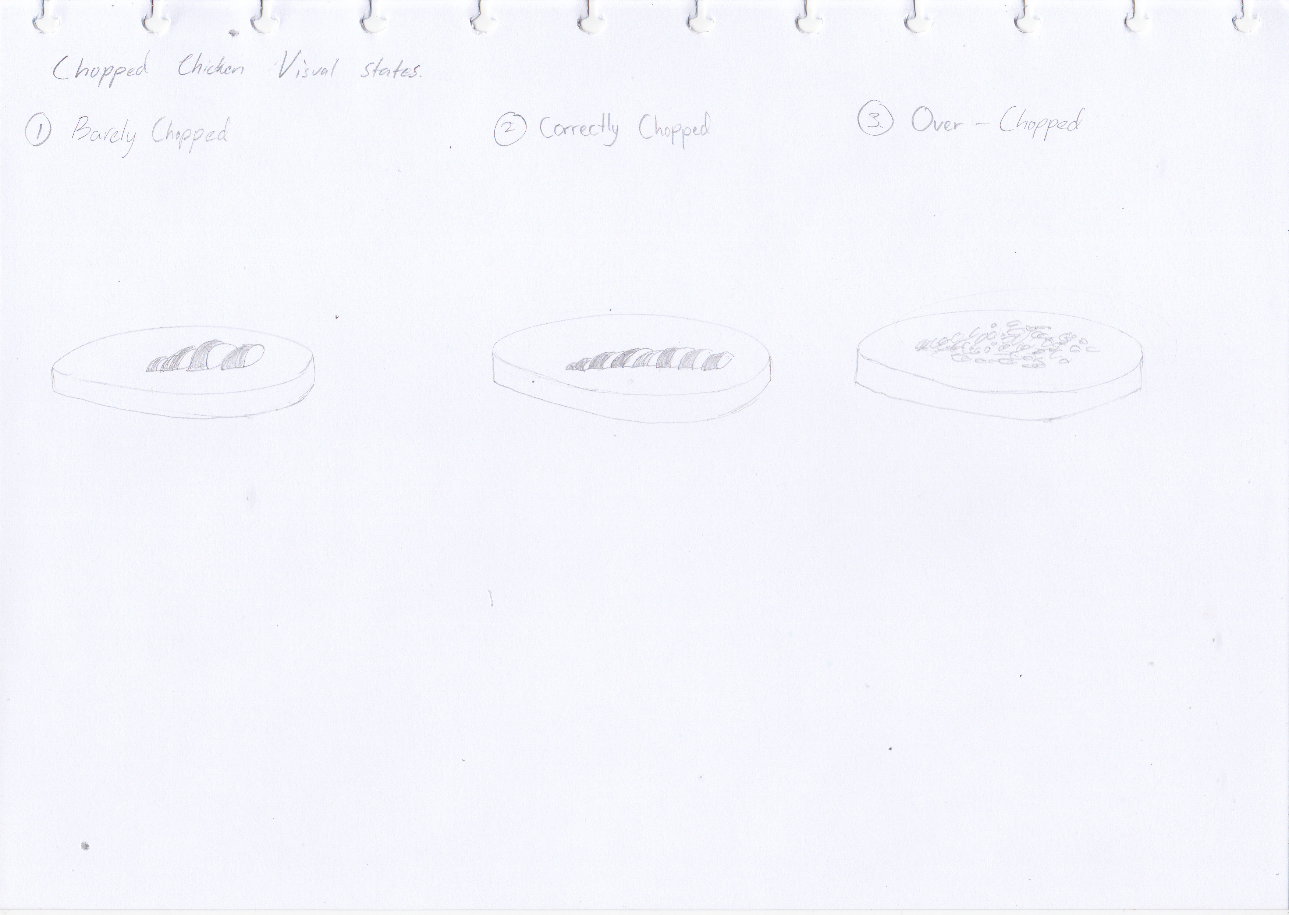 Chopped Chicken Visual states.
① Barely Chopped
② Correctly Chopped
③ Over - Chopped